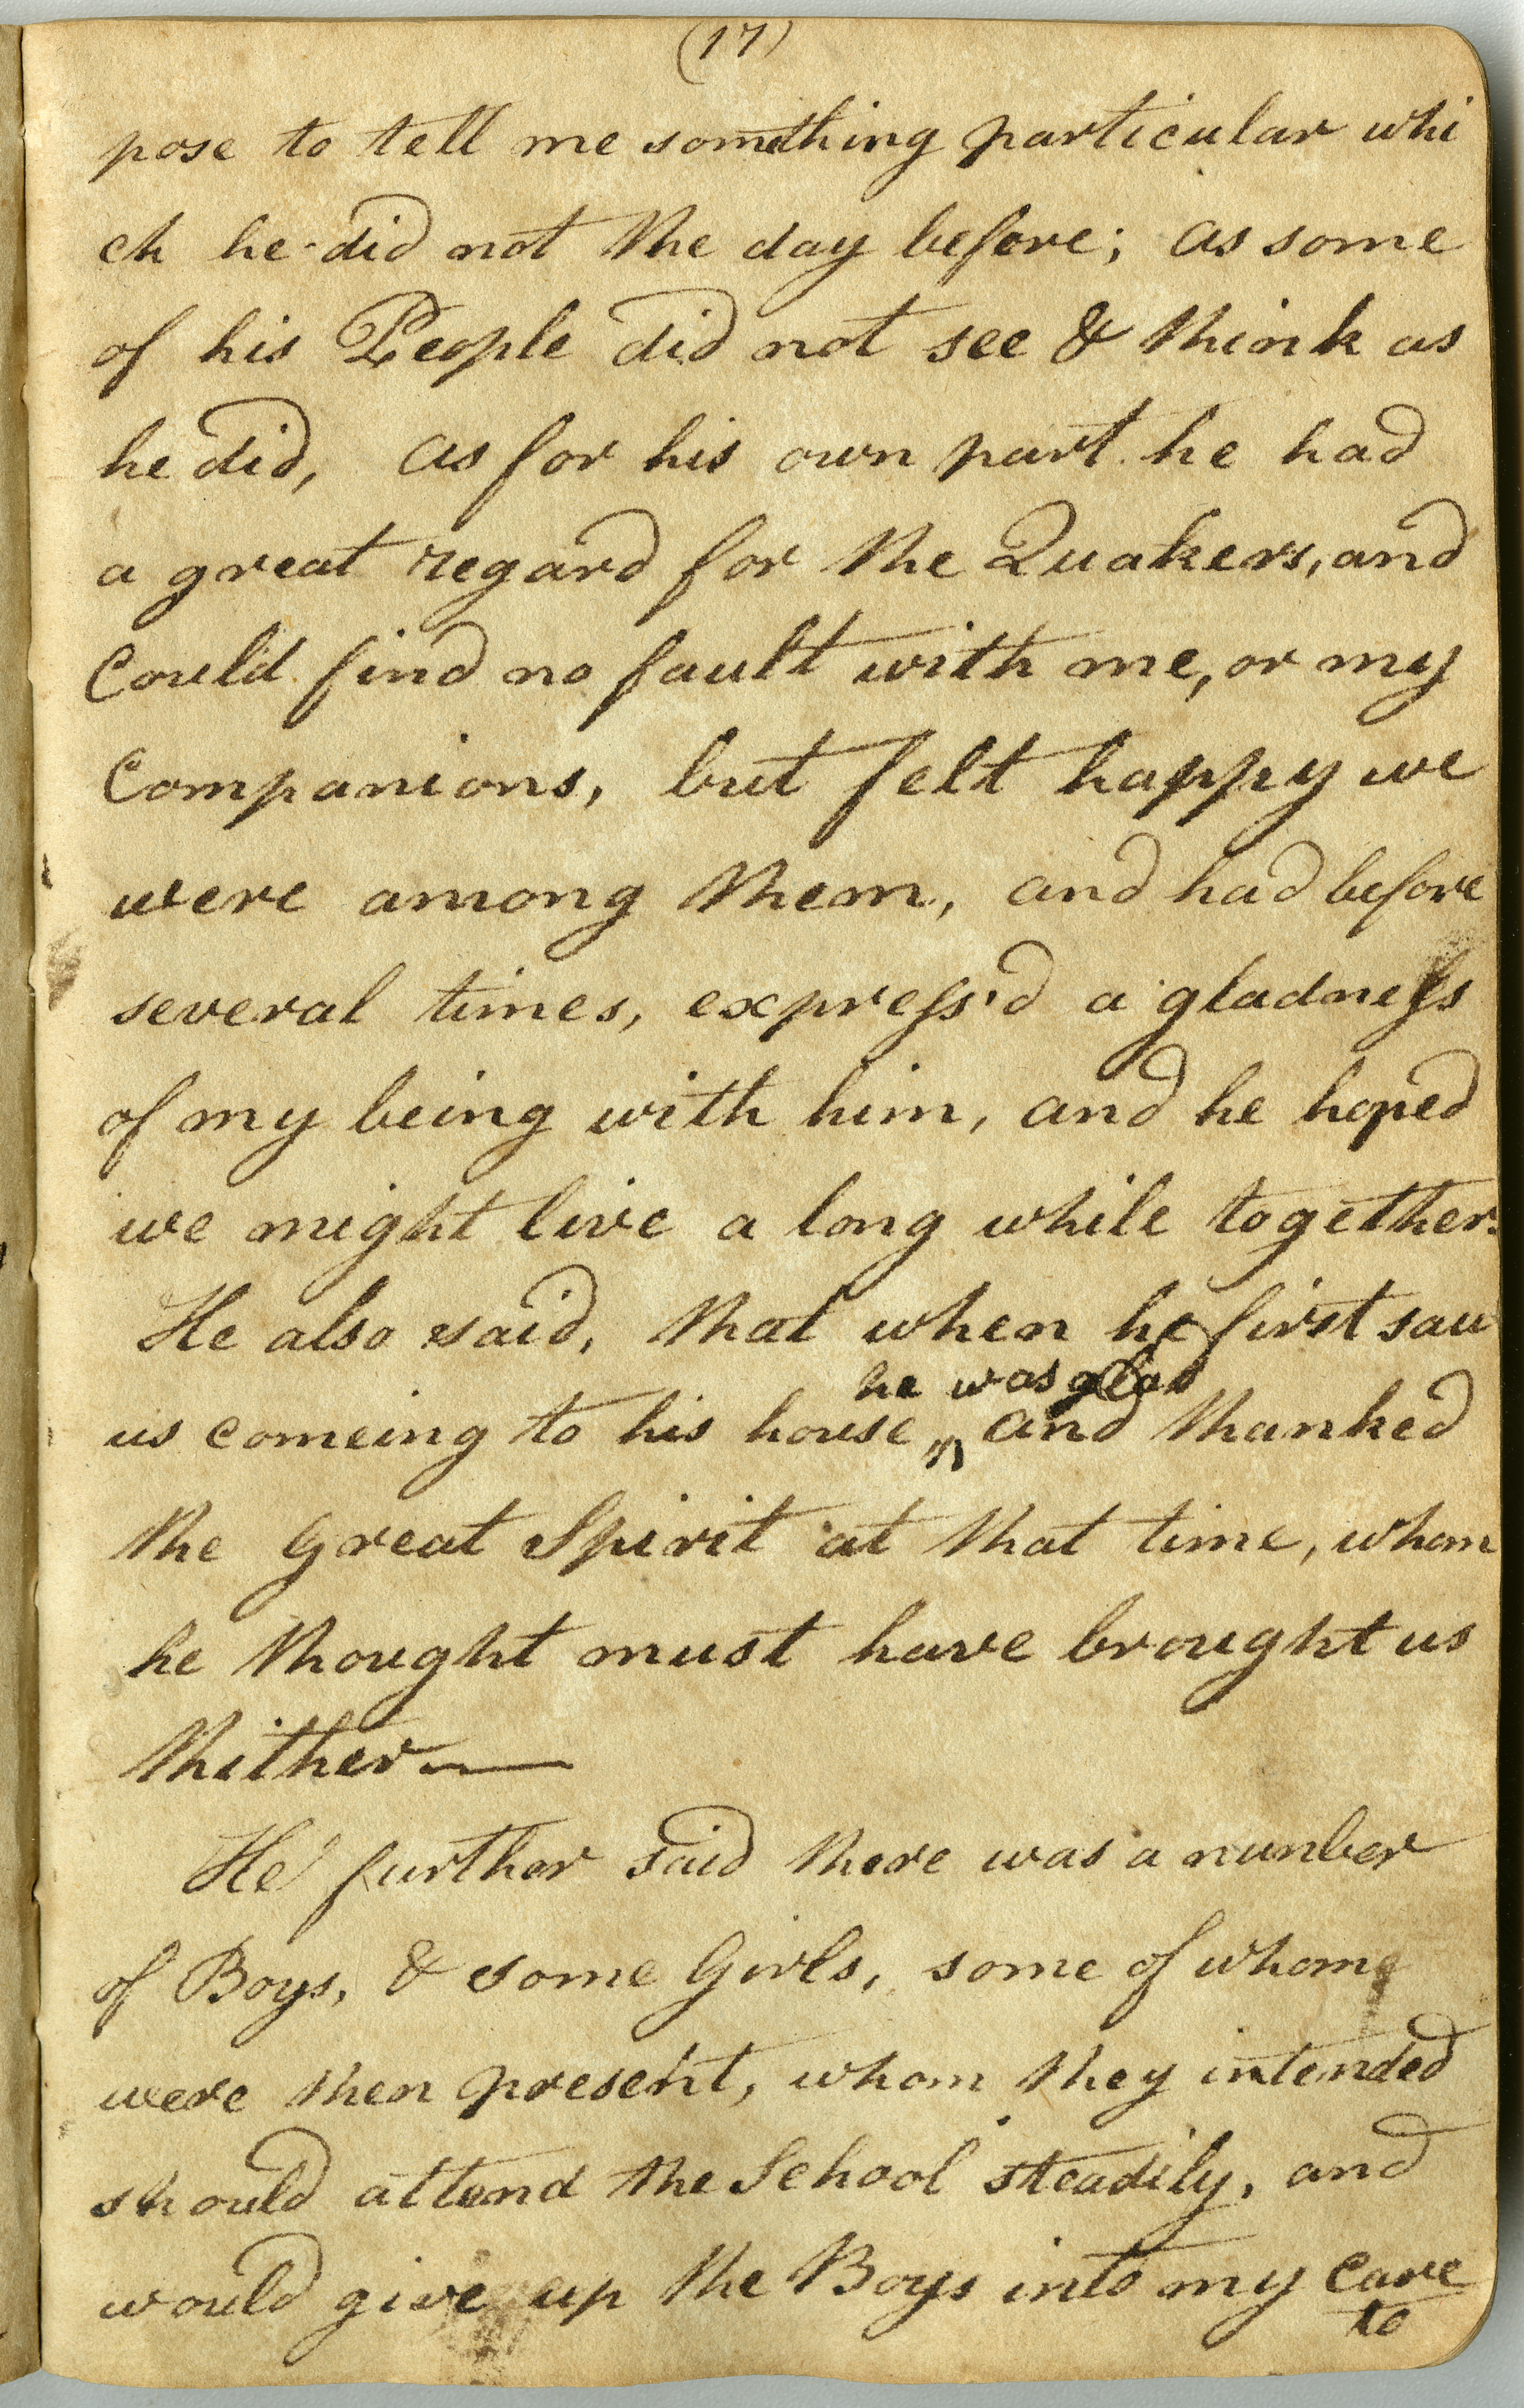 (17)
pose to tell me something particular whi
ch he did not the day before; as some
of his People did not see & think as
he did, as for his own part he had
a great regard for the Quakers, and
Could find no fault with me, or my
Companions, but felt happy we
were among them, and had before
several times, express'd a gladness
of my being with him, and he hoped
we might live a long while together.
He also said, that when he first saw
he was glad
us comeing to his house, and thanked
the Great Spirit at that time, whom
he thought must have brought us
thither—
He further said there was a number
of Boys, & some Girls, some of whome
were then present, whom they intended
should attend the School steadily, and
would give up the Boys into my Care
to